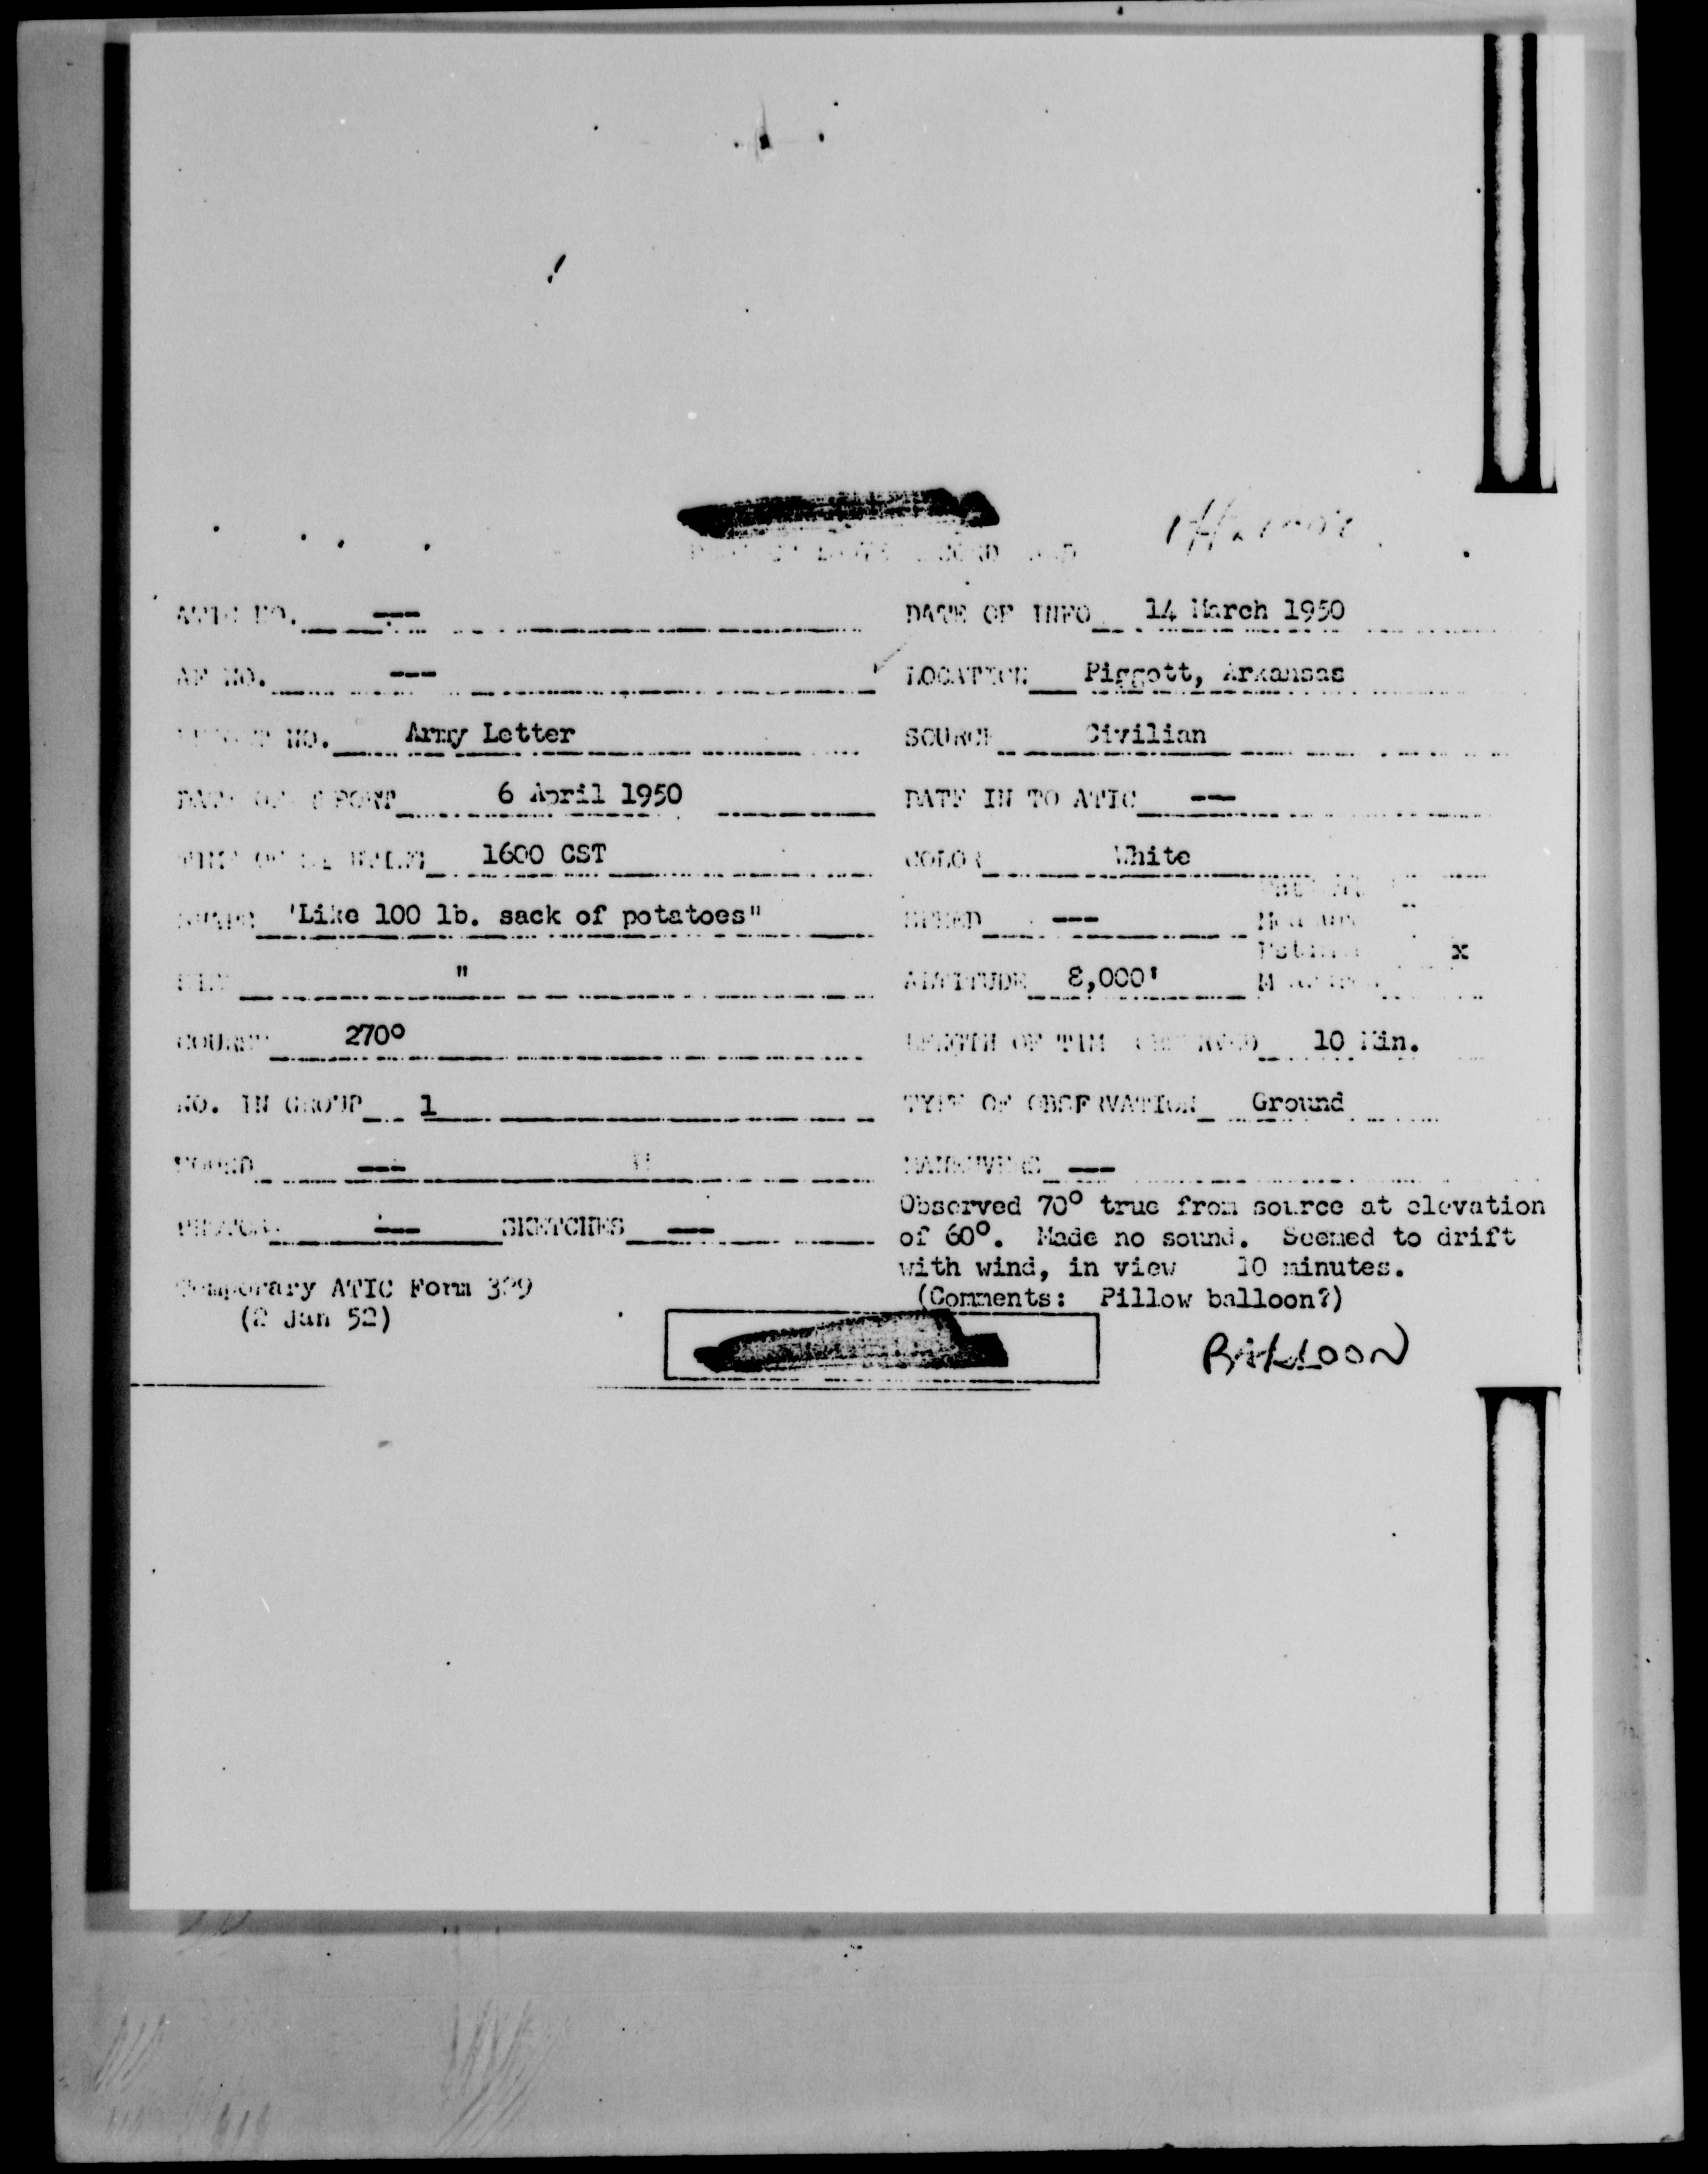 ATIC NO. ---
DATE OF INFO 14 March 1950
AF NO. ---
LOCATION Piggott, Arkansas
NO. Army Letter
SOURCE Civilian
DATE OF REPORT 6 April 1950
DATE IN TO ATIC ---
1600 CST
COLOR White
SHAPE 'Like 100 lb. sack of potatoes"
SPEED ---
x
"
ALTITUDE 8,000'
COURSE 270°
LENGTH OF TIME OBSERVED 10 Min.
NO. IN GROUP 1
TYPE OF OBSERVATION Ground
SOUND ---
MANEUVERS ---
Observed 70° true from source at elevation
PHOTOS --- SKETCHES ---
of 60°. Made no sound. Seemed to drift
with wind, in view 10 minutes.
Temporary ATIC Form 329
(Comments: Pillow balloon?)
(2 Jan 52)
BALLOON